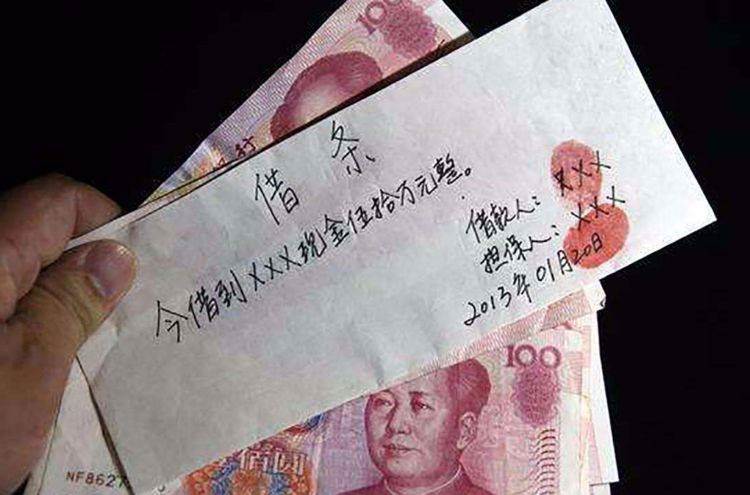 借条
今借到XXX现金伍拾万元整。
借款人：XXX
担保人：XXX
2013年01月20日
100
100
佰圆
NF862